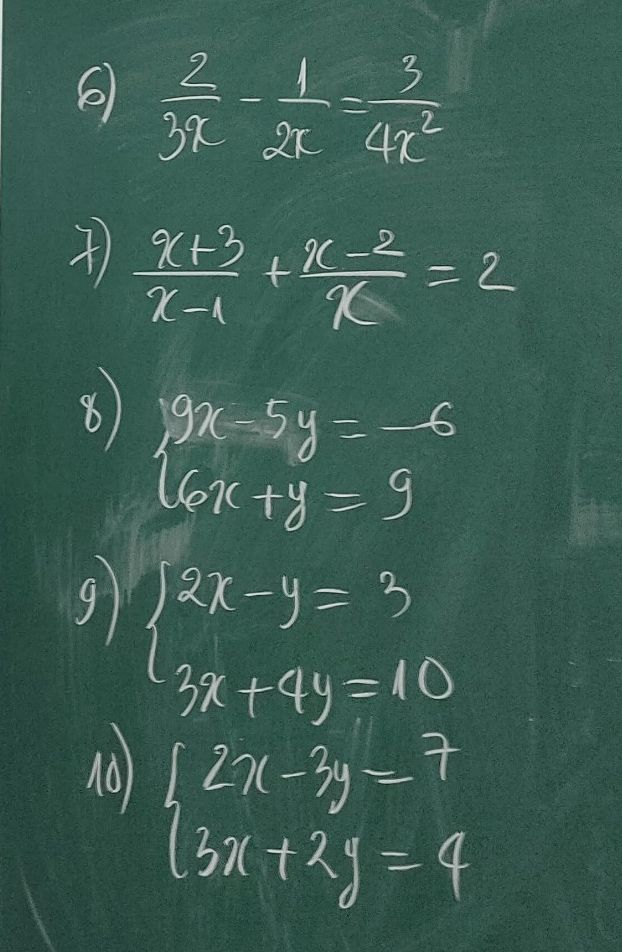 6) 2/3x - 1/2x = 3/4x²
7) x+3/x-1 + x-2/x = 2
8) { 9x-5y = -6
6x+y = 9
9) { 2x-y = 3
3x+4y = 10
10) { 2x-3y = 7
3x+2y = 4